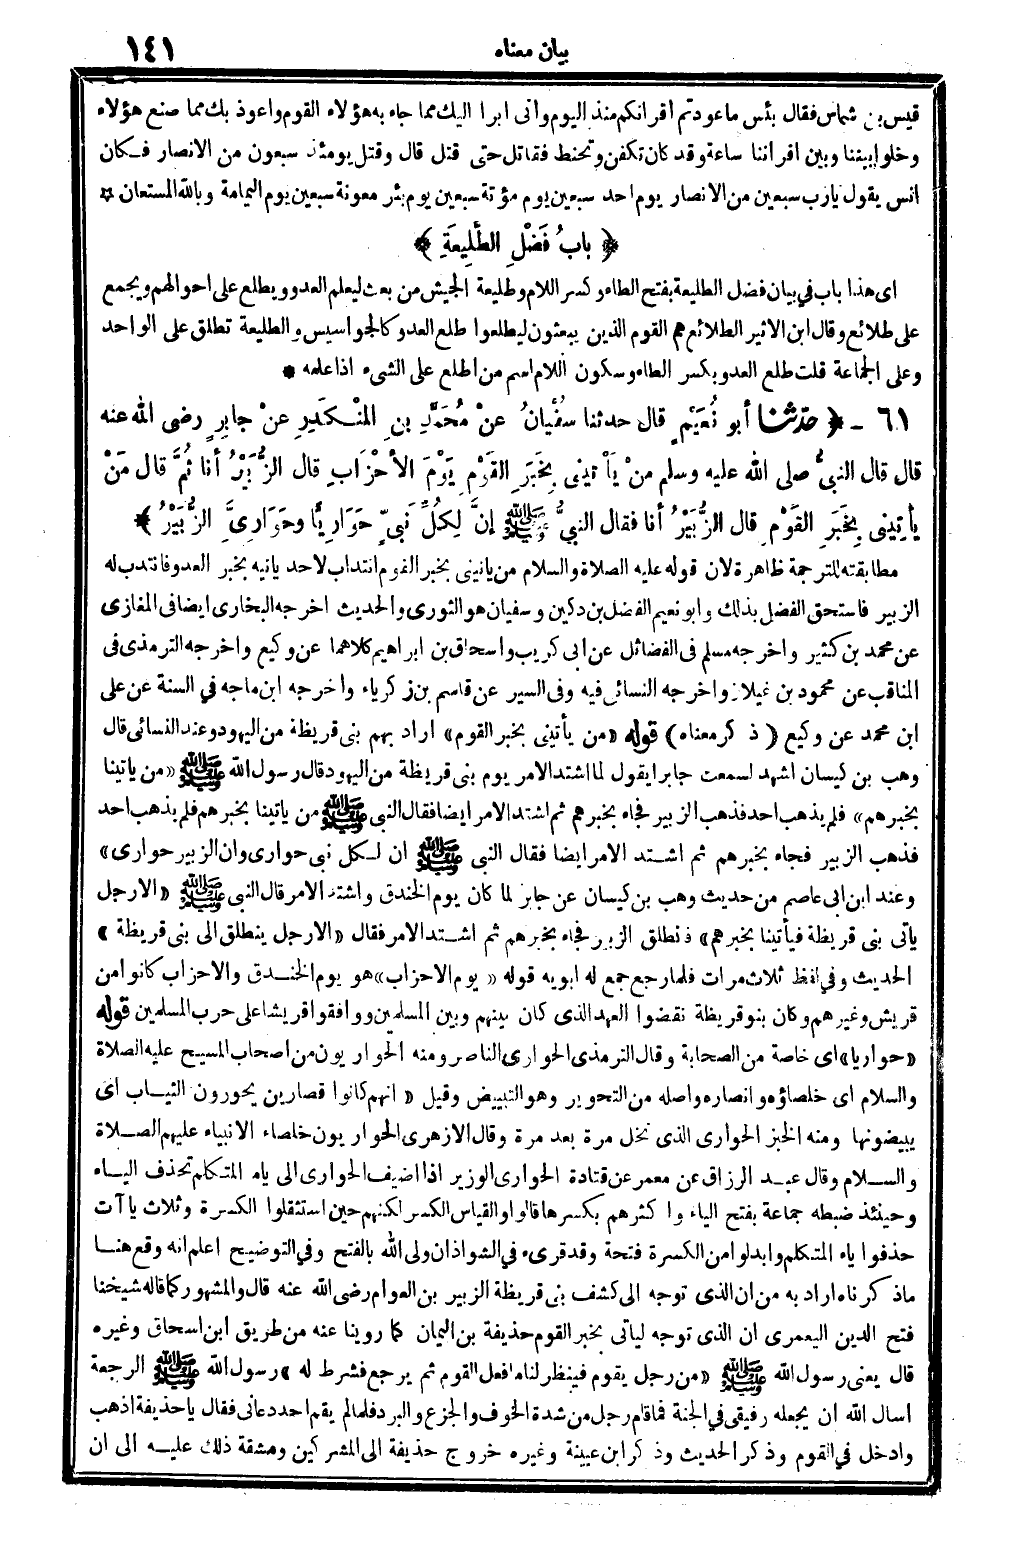 بيان معناه ١٤١
قيس بن شماس فقال بئس ما عودتم أقرانكم منذ اليوم وأنى ابرا اليك مما جاء به هؤلاء القوم واعوذ بك مما صنع هؤلاء
وخلوا بيننا وبين اقراننا ساعة وقد كان تكفن وتحنط فقاتل حتى قتل قال وقتل يومئذ سبعون من الانصار فكان
انس يقول يارب سبعين من الانصار يوم احد سبعين يوم مؤتة سبعين يوم بئر معونة سبعين يوم اليمامة وبالله المستعان *
﴿ بابُ فَضْلِ الطَّلِيعَةِ ﴾
اى هذا باب فى بيان فضل الطليعة بفتح الطاء وكسر اللام وطليعة الجيش من بعث ليعلم العدو ويطلع على احوالهم ويجمع
على طلائع وقال ابن الاثير الطلائع هم القوم الذين يبعثون ليطلعوا طلع العدو كالجواسيس والطليعة تطلق على الواحد
وعلى الجماعة قلت طلع العدو بكسر الطاء وسكون اللام اسم من اطلع على الشىء اذا علمه *
٦١ - ﴿ حدثنا أبو نُعَيْمٍ قال حدثنا سفْيانُ عنْ مُحَمَّدِ بنِ المُنْكَدِرِ عنْ جابِرٍ رضى الله عنه
قال قال النبىُّ صلى الله عليه وسلم منْ يَأْتِينِى بِخَبَرِ القَوْمِ يَوْمَ الأحْزَابِ قال الزُّبَيْرُ أنا ثُمَّ قال مَنْ
يأتِينى بِخَبَرِ القَوْمِ قال الزُّبَيْرُ أنا فقال النبىُّ ﷺ إنَّ لِكُلِّ نَبىٍّ حَوَارِيًّا وحَوَارِىَّ الزُّبَيْرُ ﴾
مطابقته للترجمة ظاهرة لان قوله عليه الصلاة والسلام من يأتينى بخبر القوم انتداب لاحد يأتيه بخبر العدو فانتدب له
الزبير فاستحق الفضل بذلك وابو نعيم الفضل بن دكين وسفيان هو الثورى والحديث اخرجه البخارى ايضا فى المغازى
عن محمد بن كثير واخرجه مسلم فى الفضائل عن ابى كريب واسحاق بن ابراهيم كلاهما عن وكيع واخرجه الترمذى فى
المناقب عن محمود بن غيلان واخرجه النسائى فيه وفى السير عن قاسم بن زكرياء واخرجه ابن ماجه في السنة عن على
ابن محمد عن وكيع ( ذكر معناه ) قوله « من يأتينى بخبر القوم » اراد بهم بنى قريظة من اليهود وعند النسائى قال
وهب بن كيسان اشهد لسمعت جابرا يقول لما اشتد الامر يوم بنى قريظة من اليهود قال رسول الله ﷺ « من ياتينا
بخبرهم » فلم يذهب احد فذهب الزبير فجاء بخبرهم ثم اشتد الامر ايضا فقال النبى ﷺ من ياتينا بخبرهم فلم يذهب احد
فذهب الزبير فجاء بخبرهم ثم اشتد الامر ايضا فقال النبى ﷺ ان لكل نبى حوارى وان الزبير حوارى »
وعند ابن ابى عاصم من حديث وهب بن كيسان عن جابر لما كان يوم الخندق واشتد الامر قال النبى ﷺ « الارجل
يأتى بنى قريظة فيأتينا بخبرهم » فانطلق الزبير فجاء بخبرهم ثم اشتد الامر فقال « الارجل ينطلق الى بنى قريظة »
الحديث وفي لفظ ثلاث مرات فلما رجع جمع له ابويه قوله « يوم الاحزاب » هو يوم الخندق والاحزاب كانوا من
قريش وغيرهم وكان بنو قريظة نقضوا العهد الذى كان بينهم وبين المسلمين ووافقوا قريشا على حرب المسلمين قوله
« حواريا » اى خاصة من الصحابة وقال الترمذى الحوارى الناصر ومنه الحواريون من اصحاب المسيح عليه الصلاة
والسلام اى خلصاؤه وانصاره واصله من التحوير وهو التبييض وقيل « انهم كانوا قصارين يحورون الثياب اى
يبيضونها ومنه الخبز الحوارى الذى نخل مرة بعد مرة وقال الازهرى الحواريون خلصاء الانبياء عليهم الصلاة
والسلام وقال عبد الرزاق عن معمر عن قتادة الحوارى الوزير اذا اضيف الحوارى الى ياء المتكلم تحذف الياء
وحينئذ ضبطه جماعة بفتح الياء واكثرهم بكسرها قالوا والقياس الكسر لكنهم حين استثقلوا الكسرة وثلاث ياآت
حذفوا ياء المتكلم وابدلوا من الكسرة فتحة وقد قرىء في الشواذ ان ولى الله بالفتح وفي التوضيح اعلم انه وقع هنا
ماذكرناه اراد به من ان الذى توجه الى كشف بنى قريظة الزبير بن العوام رضى الله عنه قال والمشهور كما قاله شيخنا
فتح الدين اليعمرى ان الذى توجه لياتى بخبر القوم حذيفة بن اليمان كما روينا عنه من طريق ابن اسحاق وغيره
قال يعنى رسول الله ﷺ « من رجل يقوم فينظر لنا ما فعل القوم ثم يرجع فشرط له » رسول الله ﷺ الرجعة
اسال الله ان يجعله رفيقى في الجنة فما قام رجل من شدة الخوف والجزع والبرد فلما لم يقم احد دعانى فقال ياحذيفة اذهب
وادخل في القوم وذكر الحديث وذكر ابن عيينة وغيره خروج حذيفة الى المشركين ومشقة ذلك عليه الى ان